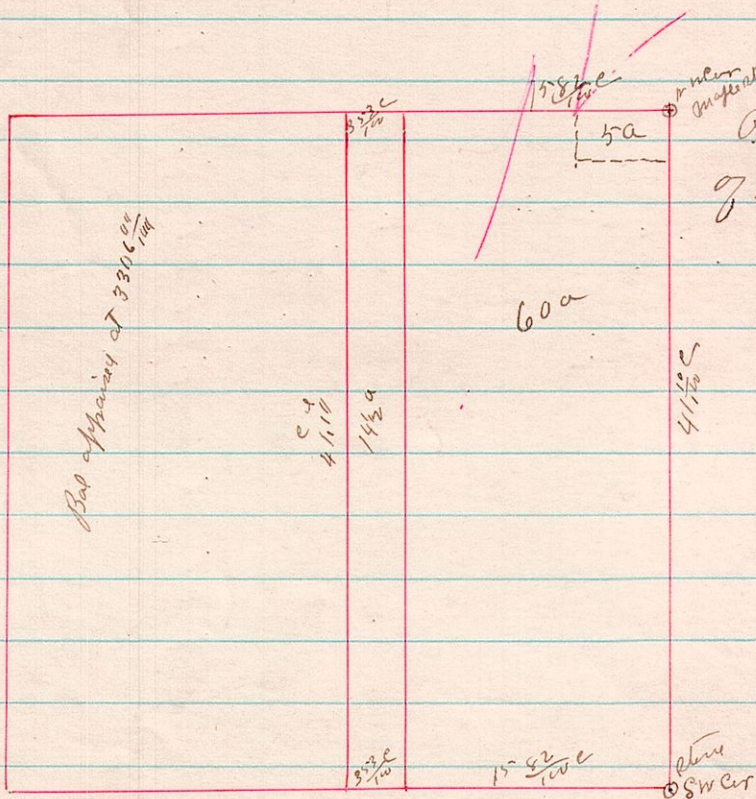 15 82/100 c
3 53/100 c
5a
Bal appraised at 3306 00/100
60a
41 10/100 c
41.10
14 1/2 a
3 53/100 c
15 82/100 c
Stone
SW Cor